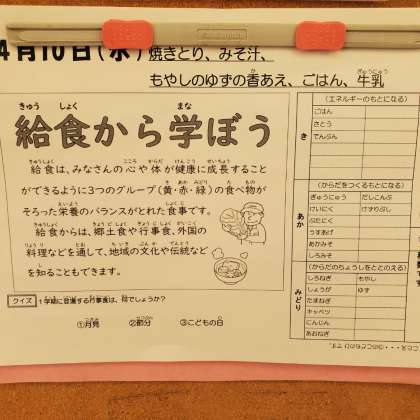 4月10日(水) 焼きとり、みそ汁、
もやしのゆずの香あえ、ごはん、牛乳
給食から学ぼう
給食は、みなさんの心や体が健康に成長すること
ができるように3つのグループ(黄・赤・緑)の食べ物が
そろった栄養のバランスがとれた食事です。
給食からは、郷土食や行事食、外国の
料理などを通して、地域の文化や伝統など
を知ることもできます。
クイズ 1学期に登場する行事食は、何でしょうか?
①月見 ②節分 ③こどもの日
き
(エネルギーのもとになる)
ごはん
さとう
でんぷん
あか
(からだをつくるもとになる)
ぎゅうにゅう だしこんぶ
けいにく けずりぶし
ぶたにく
うすあげ
あかみそ
しろみそ
みどり
(からだのちょうしをととのえる)
しろねぎ もやし
しょうが ゆず
たまねぎ
キャベツ
にんじん
あおねぎ